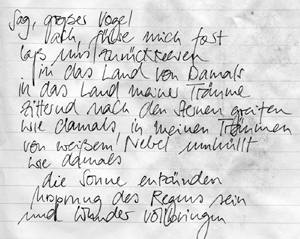 Sag, großer Vogel
halte mich fest
laß uns zurückkehren
in das Land von Damals
in das Land meiner Träume
zitternd nach den Sternen greifen
wie damals, in meinen Träumen
von weißem Nebel umhüllt
wie damals
die Sonne entzünden
Ursprung des Regens sein
und Wunder vollbringen